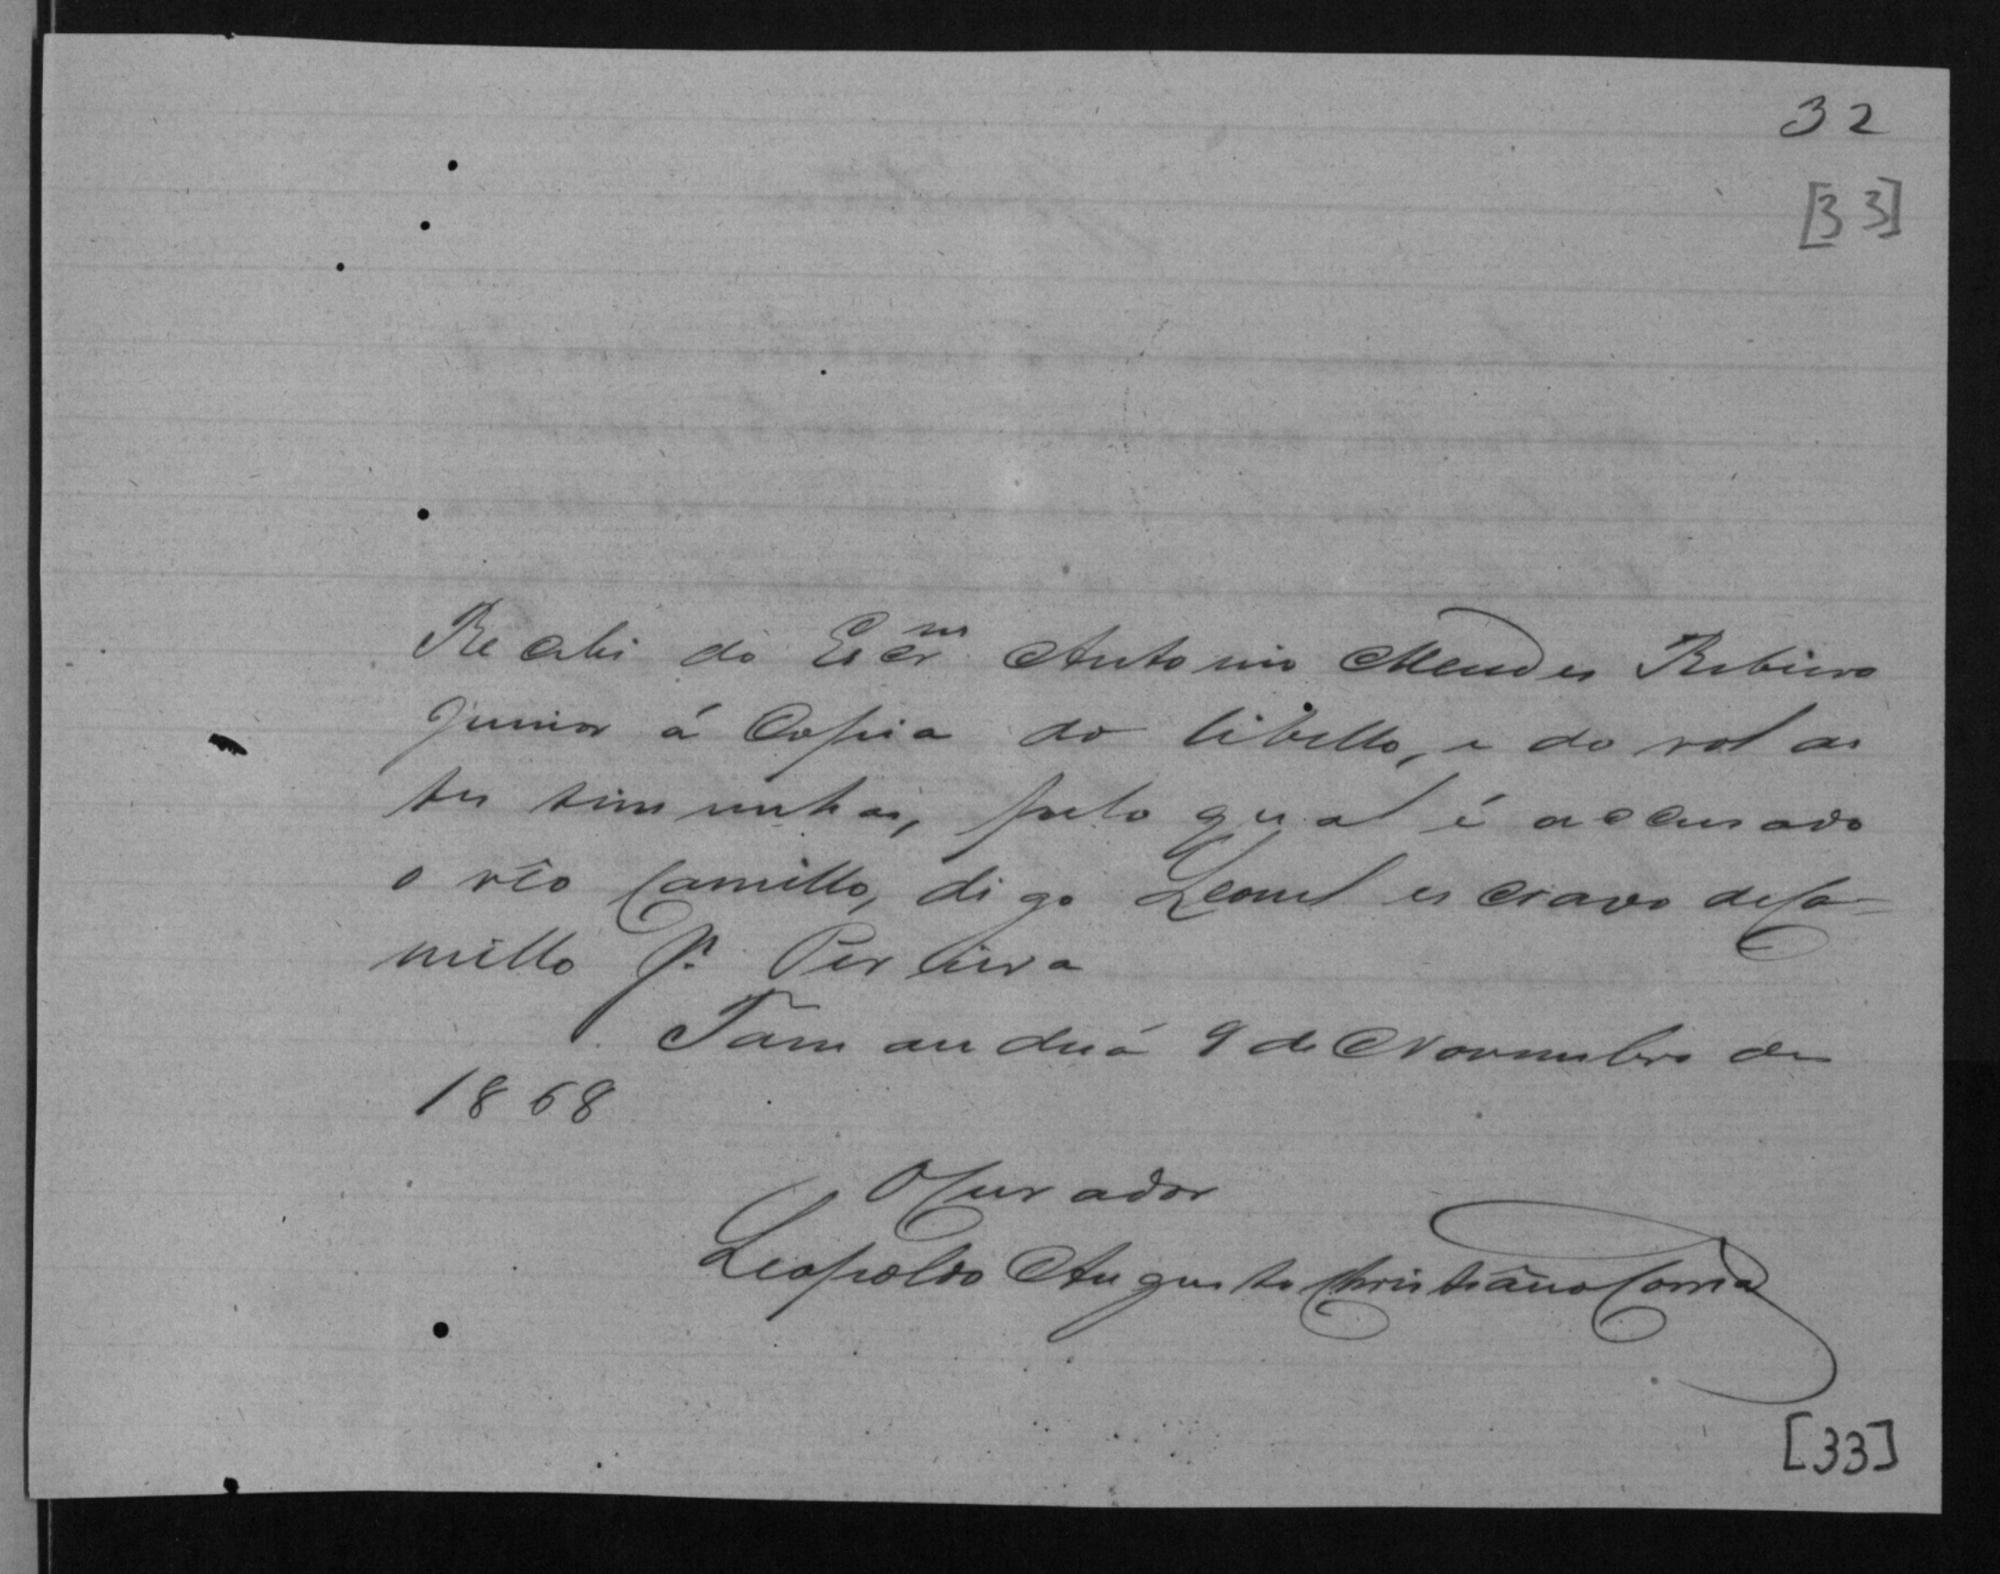 32
[33]
Recebi do Escr.m Antonio Mendes Ribeiro
Junior á Copia do libello, e do rol as
tes timunhas, pelo qual é accusado
o réo Camillo, digo Leonel escravo de Ca-
millo Jº. Pereira
Tamanduá 9 de Novembro de
1868
O Curador
Leopoldo Augusto Christiano Correa
[33]